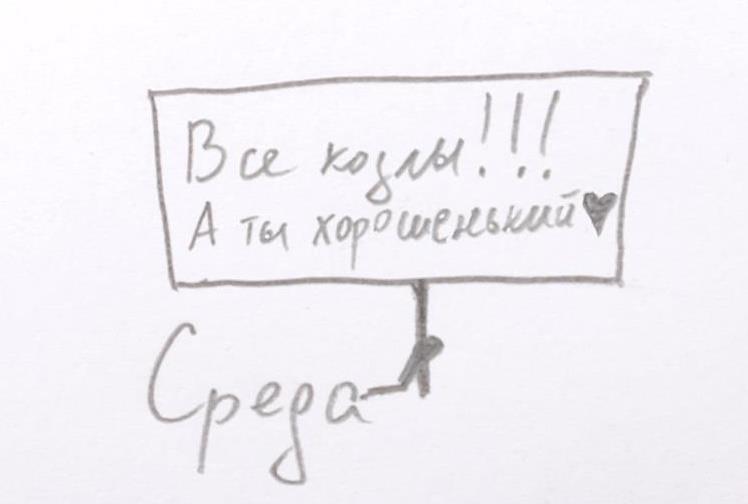 Все козлы!!!
А ты хорошенький♥
Среда